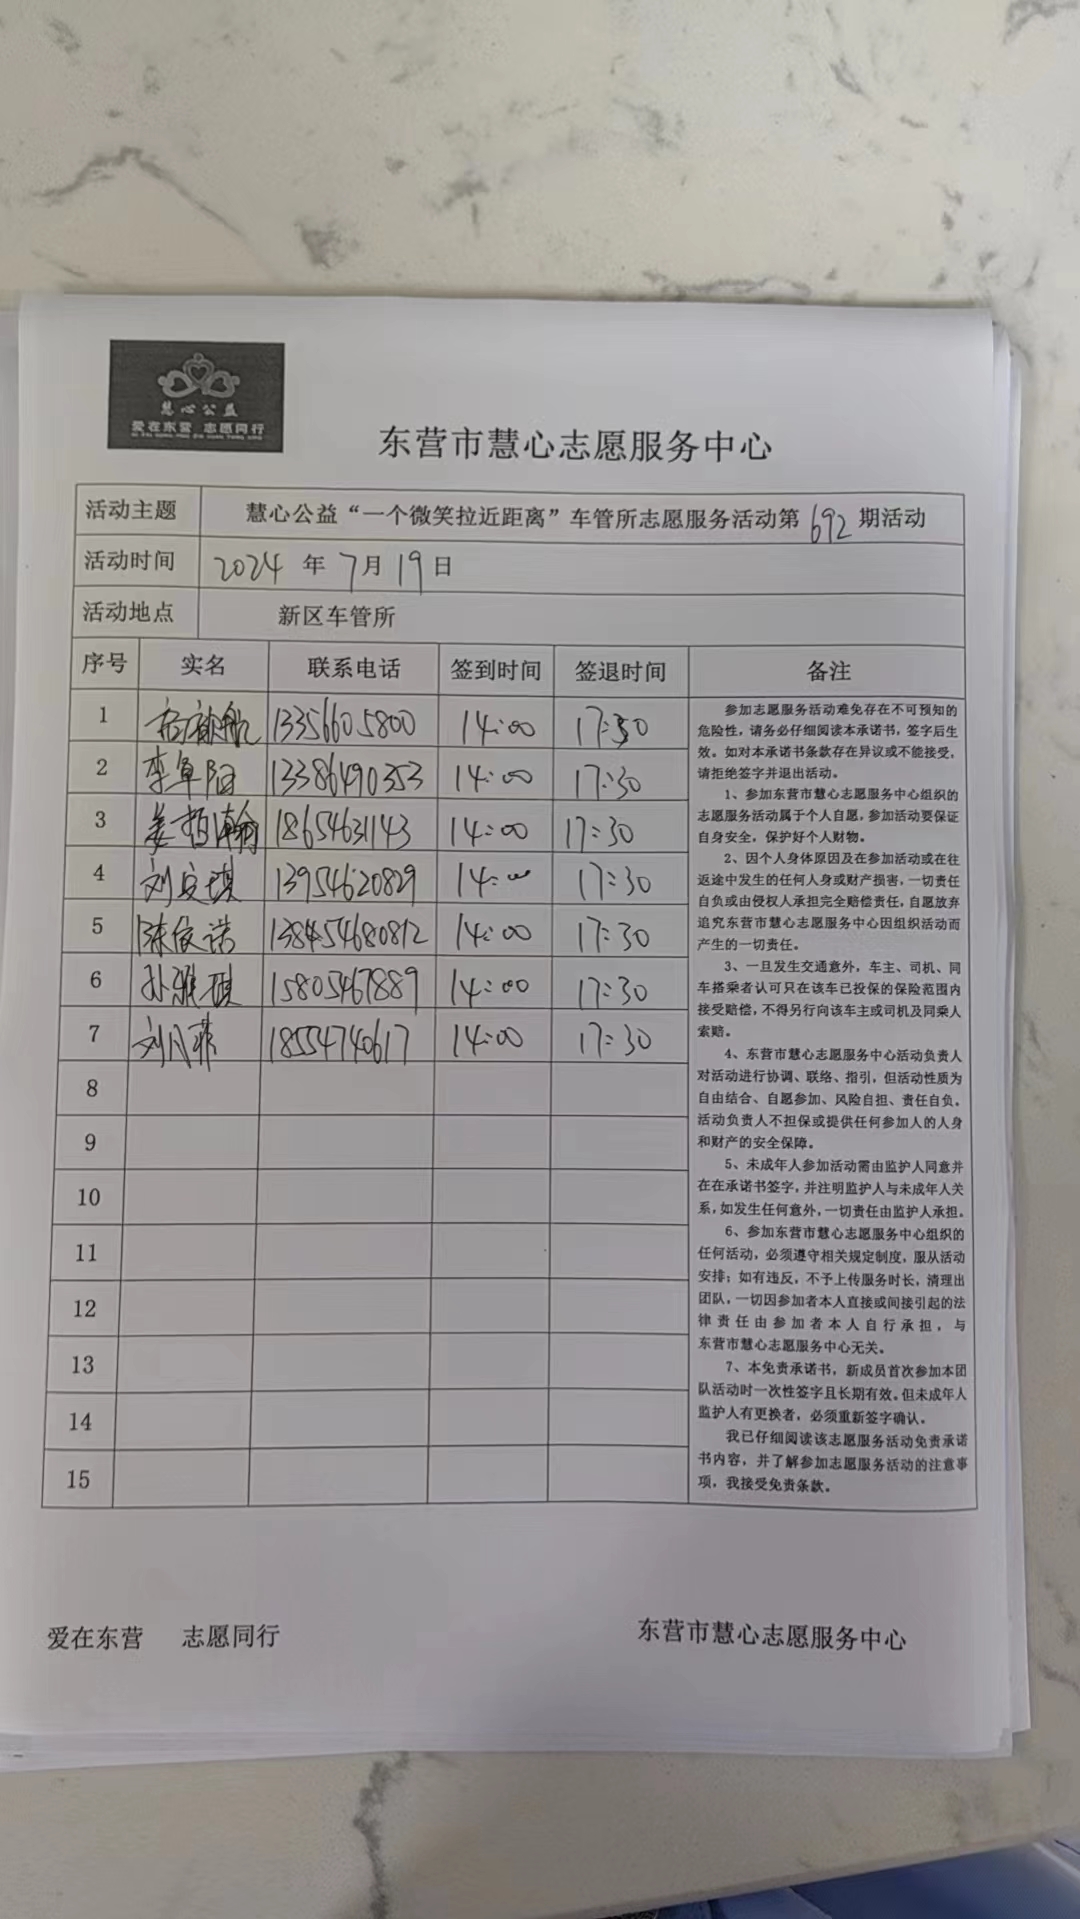 慧心公益
爱在东营 志愿同行
东营市慧心志愿服务中心
活动主题 慧心公益“一个微笑拉近距离”车管所志愿服务活动第692期活动
活动时间 2024年7月19日
活动地点 新区车管所
序号 实名 联系电话 签到时间 签退时间 备注
1 13356605800 14:00 17:30
2 13386490353 14:00 17:30
3 姜哲瀚 18654631143 14:00 17:30
4 刘安琪 13954620829 14:00 17:30
5 陈依诺 138454680812 14:00 17:30
6 孙雅琪 15805467889 14:00 17:30
7 刘凡菲 18554740617 14:00 17:30
8
9
10
11
12
13
14
15
参加志愿服务活动难免存在不可预知的
危险性，请务必仔细阅读本承诺书，签字后生
效。如对本承诺书条款存在异议或不能接受，
请拒绝签字并退出活动。
1、参加东营市慧心志愿服务中心组织的
志愿服务活动属于个人自愿，参加活动要保证
自身安全，保护好个人财物。
2、因个人身体原因及在参加活动或在往
返途中发生的任何人身或财产损害，一切责任
自负或由侵权人承担完全赔偿责任，自愿放弃
追究东营市慧心志愿服务中心因组织活动而
产生的一切责任。
3、一旦发生交通意外，车主、司机、同
车搭乘者认可只在该车已投保的保险范围内
接受赔偿，不得另行向该车主或司机及同乘人
索赔。
4、东营市慧心志愿服务中心活动负责人
对活动进行协调、联络、指引，但活动性质为
自由结合、自愿参加、风险自担、责任自负。
活动负责人不担保或提供任何参加人的人身
和财产的安全保障。
5、未成年人参加活动需由监护人同意并
在在承诺书签字，并注明监护人与未成年人关
系，如发生任何意外，一切责任由监护人承担。
6、参加东营市慧心志愿服务中心组织的
任何活动，必须遵守相关规定制度，服从活动
安排；如有违反，不予上传服务时长，清理出
团队，一切因参加者本人直接或间接引起的法
律责任由参加者本人自行承担，与
东营市慧心志愿服务中心无关。
7、本免责承诺书，新成员首次参加本团
队活动时一次性签字且长期有效。但未成年人
监护人有更换者，必须重新签字确认。
我已仔细阅读该志愿服务活动免责承诺
书内容，并了解参加志愿服务活动的注意事
项，我接受免责条款。
爱在东营 志愿同行 东营市慧心志愿服务中心